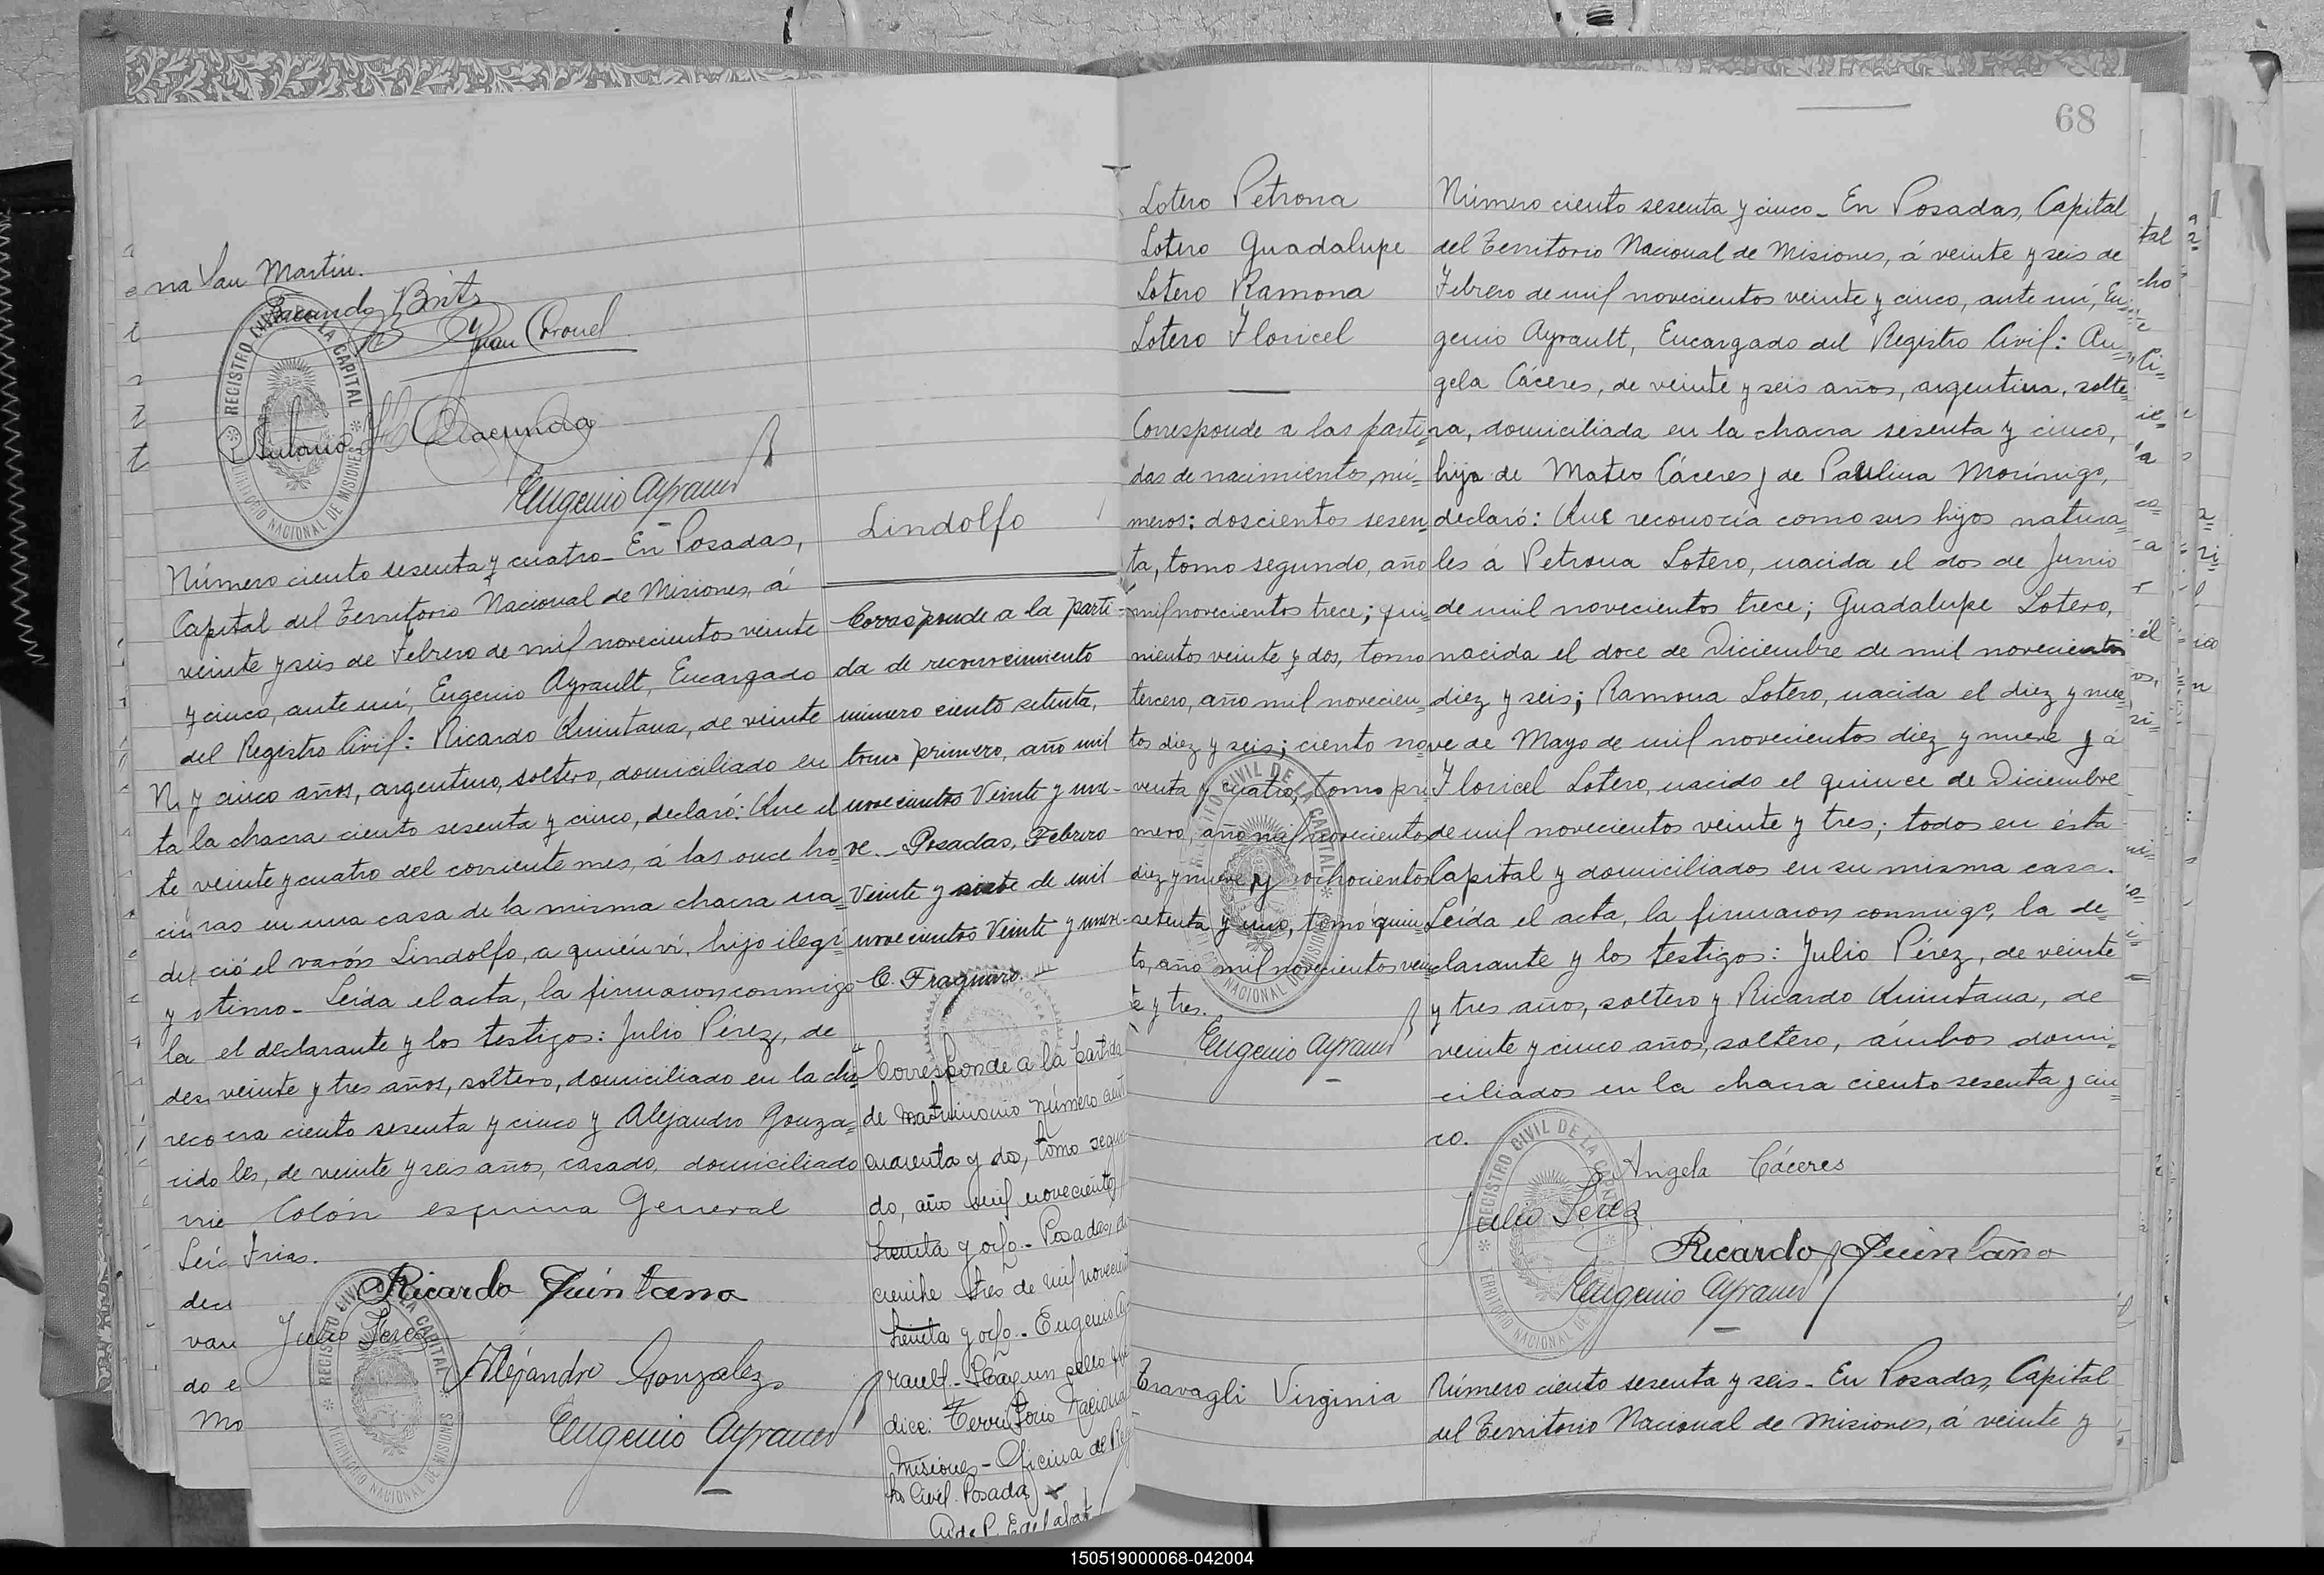 na San Martin.
Facundo Brits
Juan Coronel
Eugenio Ayrault
REGISTRO CIVIL DE LA CAPITAL
TERRITORIO NACIONAL DE MISIONES
Número ciento sesenta y cuatro_ En Posadas,
Capital del Territorio Nacional de Misiones, á
veinte y seis de Febrero de mil novecientos veinte
y cinco, ante mí, Eugenio Ayrault, Encargado
del Registro Civil: Ricardo Quintana, de veinte
y cinco años, argentino, soltero, domiciliado en
la chacra ciento sesenta y cinco, declaró: Que el
veinte y cuatro del corriente mes, á las once ho=
ras en una casa de la misma chacra na=
ció el varón Lindolfo, a quién ví, hijo ilegí
timo_ Leída el acta, la firmaron conmigo
el declarante y los testigos: Julio Pérez, de
veinte y tres años, soltero, domiciliado en la cha=
cra ciento sesenta y cinco y Alejandro Gonza=
les, de veinte y seis años, casado, domiciliado
Colón esquina General
Frias.
Ricardo Quintana
Julio Peres
Alejandro Gonzalez
Eugenio Ayrault
REGISTRO CIVIL DE LA CAPITAL
TERRITORIO NACIONAL DE MISIONES
Lindolfo
Corresponde a la parti-
da de reconocimiento
número ciento setenta,
tomo primero, año mil
novecientos veinte y nue-
ve._ Posadas, Febrero
veinte y siete de mil
novecientos veinte y nueve-
C. Fragueiro.
Corresponde a la partida
de matrimonio número
cuarenta y dos, tomo segun
do, año mil novecientos
treinta y ocho - Posadas,
tres de mil
treinta y ocho - Eugenio Ay
rault - Hay un sello que
dice: Territorio Nacional
Misiones - Oficina de
Civil. Posadas
68
Lotero Petrona
Lotero Guadalupe
Lotero Ramona
Lotero Floricel
Corresponde a las parti=
das de nacimientos, nú=
meros: doscientos sesen=
ta, tomo segundo, año
mil novecientos trece; qui=
nientos veinte y dos, tomo
tercero, año mil novecien=
tos diez y seis; ciento no
venta y cuatro, tomo pri
mero, año mil novecientos
diez y nueve y ochocientos
setenta y uno, tomo quin
to, año mil novecientos vein
te y tres.
Eugenio Ayrault
REGISTRO CIVIL DE LA CAPITAL
TERRITORIO NACIONAL DE MISIONES
Número ciento sesenta y cinco_ En Posadas, Capital
del Territorio Nacional de Misiones, á veinte y seis de
Febrero de mil novecientos veinte y cinco, ante mí, Eu=
genio Ayrault, Encargado del Registro Civil: An=
gela Cáceres, de veinte y seis años, argentina, solte=
ra, domiciliada en la chacra sesenta y cinco,
hija de Mateo Cáceres y de Paulina Morínigo,
declaró: Que reconocía como sus hijos natura=
les á Petrona Lotero, nacida el dos de Junio
de mil novecientos trece; Guadalupe Lotero,
nacida el doce de Diciembre de mil novecientos
diez y seis; Ramona Lotero, nacida el diez y nue=
ve de Mayo de mil novecientos diez y nueve y á
Floricel Lotero, nacido el quince de Diciembre
de mil novecientos veinte y tres; todos en ésta
Capital y domiciliados en su misma casa.
Leída el acta, la firmaron conmigo, la de=
clarante y los testigos: Julio Pérez, de veinte
y tres años, soltero y Ricardo Quintana, de
veinte y cinco años, soltero, ámbos domi=
ciliados en la chacra ciento sesenta y cin=
co.
Angela Cáceres
Julio Peres
Ricardo Quintana
Eugenio Ayrault
REGISTRO CIVIL DE LA CAPITAL
TERRITORIO NACIONAL DE MISIONES
Travagli Virginia
Número ciento sesenta y seis_ En Posadas, Capital
del Territorio Nacional de Misiones, á veinte y
150519000068-042004